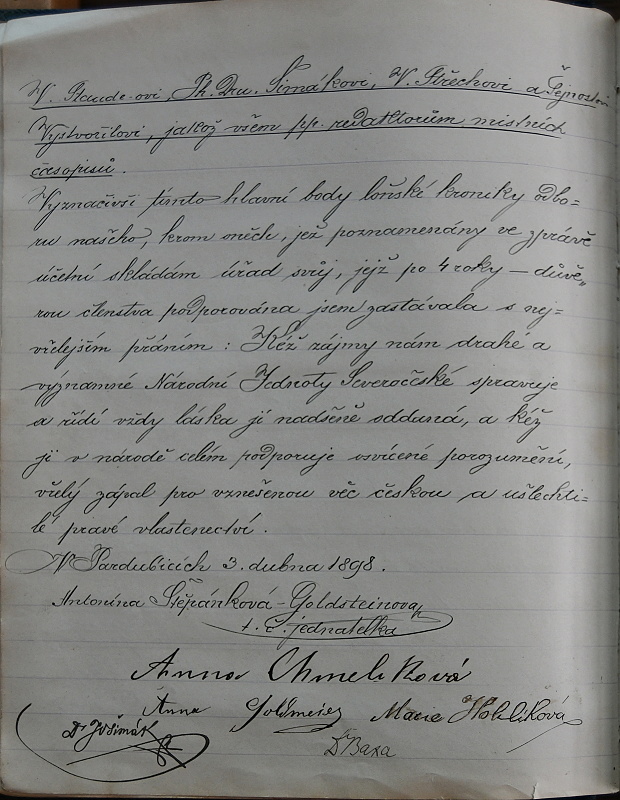 V. Staude-ovi, Ph. Dru. Šimákovi, V. Střechovi a Šejnostovi
Vystrožilovi, jakož všem pp. redaktorům místních
časopisů.
Vyznačivši tímto hlavní body loňské kroniky odbo-
ru našeho, krom oněch, jež poznamenány ve zprávě
účetní skládám úřad svůj, jejž po 4 roky — důvě-
rou členstva podporována jsem zastávala s nej-
vřelejším přáním: Kéž zájmy nám drahé a
významné Národní Jednoty Severočeské spravuje
a řídí vždy láska jí nadšeně oddaná, a kéž
ji v národě celém podporuje osvícené porozumění,
vřelý zápal pro vznešenou věc českou a ušlechti-
lé pravé vlastenectví.
V Pardubicích 3. dubna 1898.
Antonína Štěpánková-Goldsteinova
t. č. jednatelka
Anna Chmelíková
Anna Marie
Dr
Dr Baxa